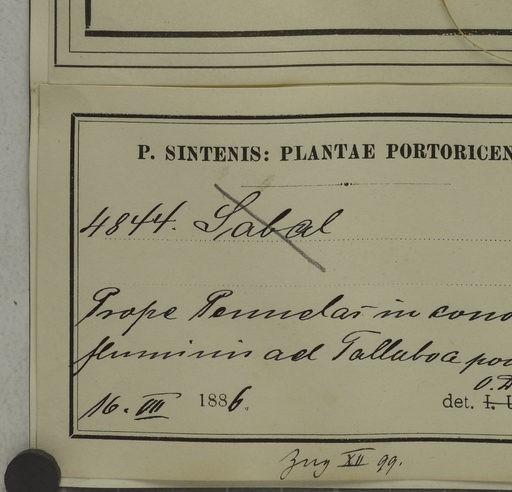 P. SINTENIS: PLANTAE PORTORICEN
4844. Sabal
Prope Penuelas in cono
fluminis ad Tallaboa
16. VII 1886.
det.
XII 99.